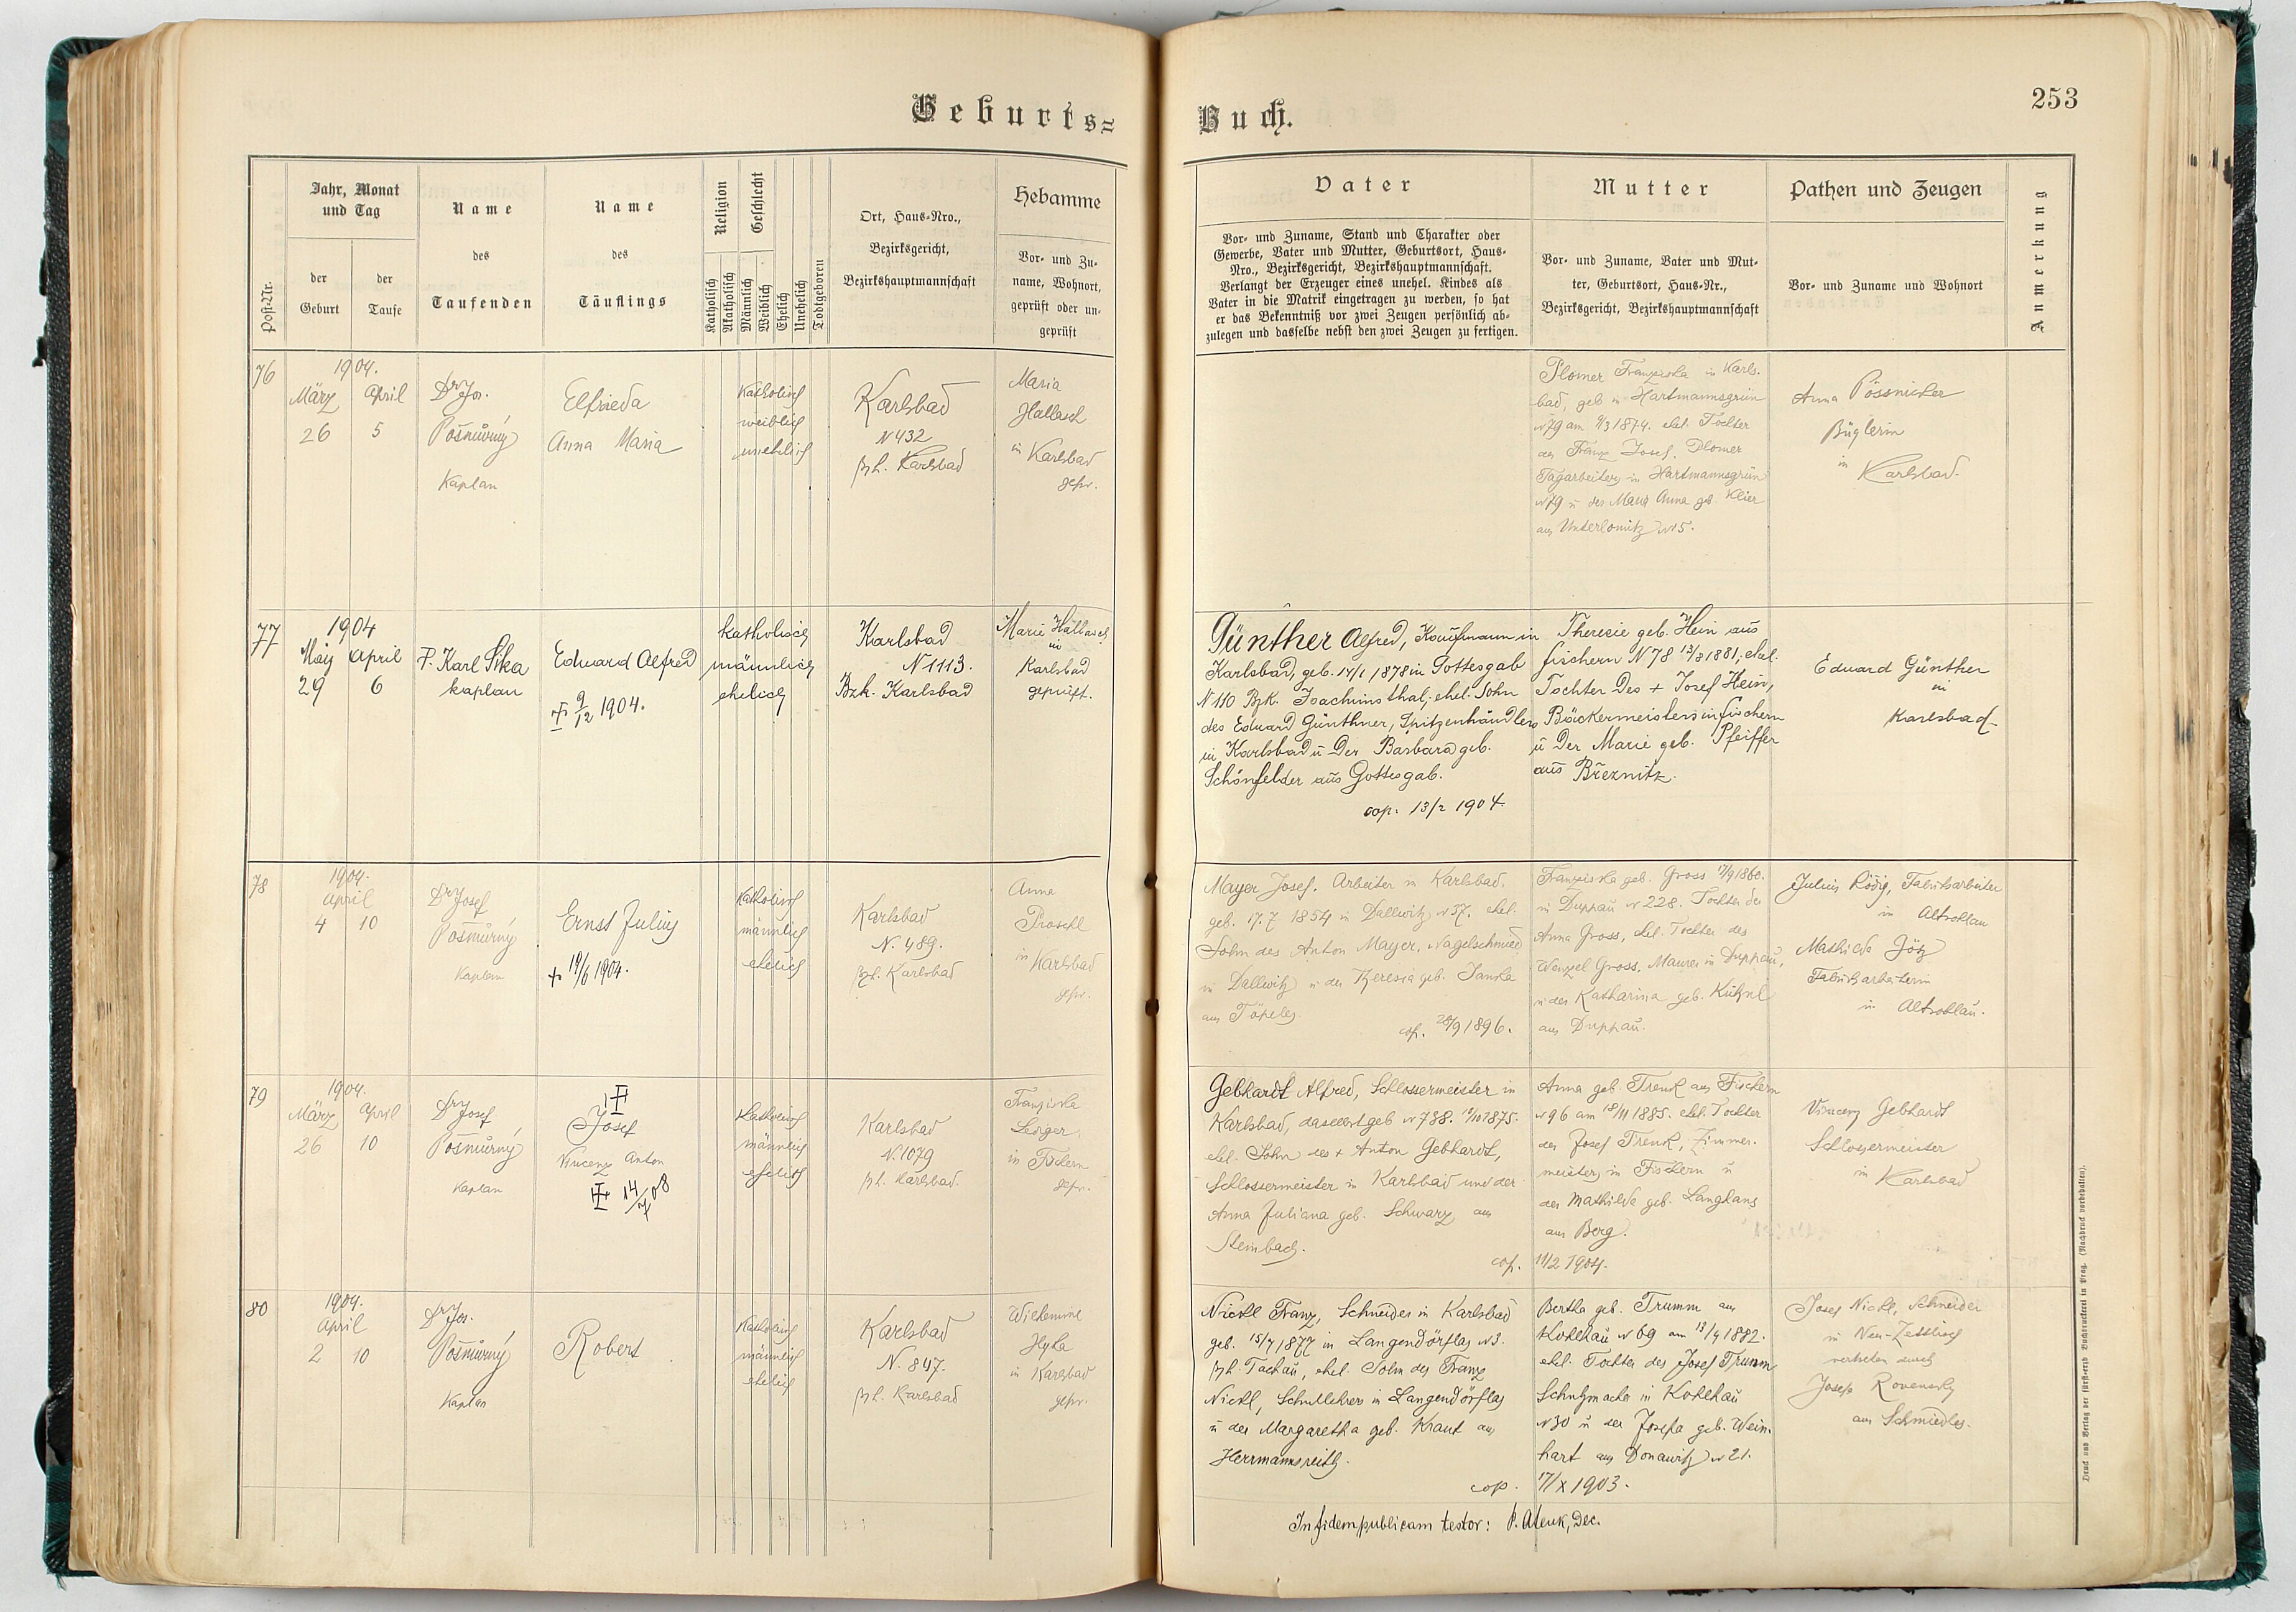 Geburts-
Buch.
253
Post-Nr.
Jahr, Monat
und Tag
der
Geburt
der
Taufe
Name
des
Taufenden
Name
des
Täuflings
Religion
Katholisch
Akatholisch
Geschlecht
Männlich
Weiblich
Ehelich
Unehelich
Todtgeboren
Ort, Haus-Nro.,
Bezirksgericht,
Bezirkshauptmannschaft
Hebamme
Vor- und Zu-
name, Wohnort,
geprüft oder un-
geprüft
Vater
Vor- und Zuname, Stand und Charakter oder
Gewerbe, Vater und Mutter, Geburtsort, Haus-
Nro., Bezirksgericht, Bezirkshauptmannschaft.
Verlangt der Erzeuger eines unehel. Kindes als
Vater in die Matrik eingetragen zu werden, so hat
er das Bekenntniß vor zwei Zeugen persönlich ab-
zulegen und dasselbe nebst den zwei Zeugen zu fertigen.
Mutter
Vor- und Zuname, Vater und Mut-
ter, Geburtsort, Haus-Nr.,
Bezirksgericht, Bezirkshauptmannschaft
Pathen und Zeugen
Vor- und Zuname und Wohnort
Anmerkung
76
1904.
März
26
April
5
Dr Jos.
Pošmůrný
Kaplan
Elfrieda
Anna Maria
katholisch
weiblich
unehelich
Karlsbad
N 432
Bzh. Karlsbad
Maria
Hallasch
in Karlsbad
gepr.
Plomer Franziska in Karls-
bad, geb. in Hartmannsgrün
N 79 am 1/3 1874. ehel. Tochter
des Franz Josef Plomer
Tagarbeiters in Hartmannsgrün
N 79 u. der Maria Anna geb. Klier
aus Unterlomitz N 15.
Anna Pössnicker
Büglerin
in
Karlsbad.
77
1904
März
29
April
6
P. Karl Sika
kaplan
Eduard Alfred
+ 9/12 1904.
katholisch
männlich
ehelich
Karlsbad
N 1113.
Bzh. Karlsbad
Marie Hallasch
in
Karlsbad
geprüft.
Günther Alfred, Kaufmann in
Karlsbad, geb. 14/1 1878 in Gottesgab
N 110 Bzk. Joachimsthal, ehel. Sohn
des Eduard Günthner, Spitzenhändlers
in Karlsbad u der Barbara geb.
Schönfelder aus Gottesgab.
cop. 13/2 1904.
Theresie geb. Hein aus
Fischern N 78 13/8 1881, ehel.
Tochter des + Josef Hein,
Bäckermeisters in Fischern
u der Marie geb. Pfeiffer
aus Březnitz.
Eduard Günther
in
Karlsbad
78
1904.
April
4
10
Dr Josef
Pošmůrný
Kaplan
Ernst Julius
+ 19/6 1904.
Katholisch
männlich
ehelich
Karlsbad
N. 489.
Bzh. Karlsbad
Anna
Proschl
in Karlsbad
gepr.
Mayer Josef. Arbeiter in Karlsbad.
geb. 17.7 1854 in Dallwitz N 37. ehel.
Sohn des Anton Mayer. Nagelschmied
in Dallwitz u der Theresia geb. Janka
aus Töpeles
cop. 28/9 1896.
Franziska geb. Gross 17/9 1860.
in Duppau N 228. Tochter der
Anna Gross, ehel. Tochter des
Wenzel Gross, Maurer in Duppau,
u der Katharina geb. Kühnl
aus Duppau.
Julius Rödig, Fabriksarbeiter
in Altrohlau
Mathilde Götz
Fabriksarbeiterin
in Altrohlau.
79
1904.
März
26
April
10
Dr Josef
Pošmůrný
Kaplan
Josef
Vincenz Anton
14/7 08
Katholisch
männlich
ehelich
Karlsbad
N. 1079
Bzh. Karlsbad.
Franziska
in Fischern
gepr.
Gebhardt Alfred, Schlossermeister in
Karlsbad, daselbst geb N 738. 19/10 1875.
ehel. Sohn des + Anton Gebhardt,
Schlossermeister in Karlsbad und der
Anna Juliana geb. Schwarz aus
Steinbach.
cop. 11/2 1904.
Anna geb Trenk aus Fischern
N 96 am 18/11 1885. ehel. Tochter
des Josef Trenk, Zimmer-
meister in Fischern u
der Mathilde geb. Langhans
aus Berg.
Vincenz Gebhardt
Schlossermeister
in Karlsbad
80
1904.
April
2
10
Dr Jos.
Pošmůrný
Kaplan
Robert
Katholisch
männlich
ehelich
Karlsbad
N. 847.
Bzh. Karlsbad
Wilhemine
Hyka
in Karlsbad
gepr.
Nickl Franz, Schneider in Karlsbad
geb. 15/7 1877 in Langendörflas N 3.
Bzh. Tachau, ehel. Sohn des Franz
Nickl, Schullehrers in Langendörflas
u der Margaretha geb. Kraut aus
Herrmannsreith.
cop. 17/X 1903.
Bertha geb. Trumm aus
Kohlhau N 69 am 13/4 1882.
ehel. Tochter des Josef Trumm
Schuhmacher in Kohlhau
N 30 u der Josefa geb. Wein-
hart aus Donawitz N 21.
Josef Nickl, Schneider
in Neu-Zettlisch
vertreten durch
Josefa Rovensky
aus Schmiedles.
In fidem publicam testor: P. Alenk, Dec.
Druck und Verlag der fürsterzb. Buchdruckerei in Prag. (Nachdruck vorbehalten).